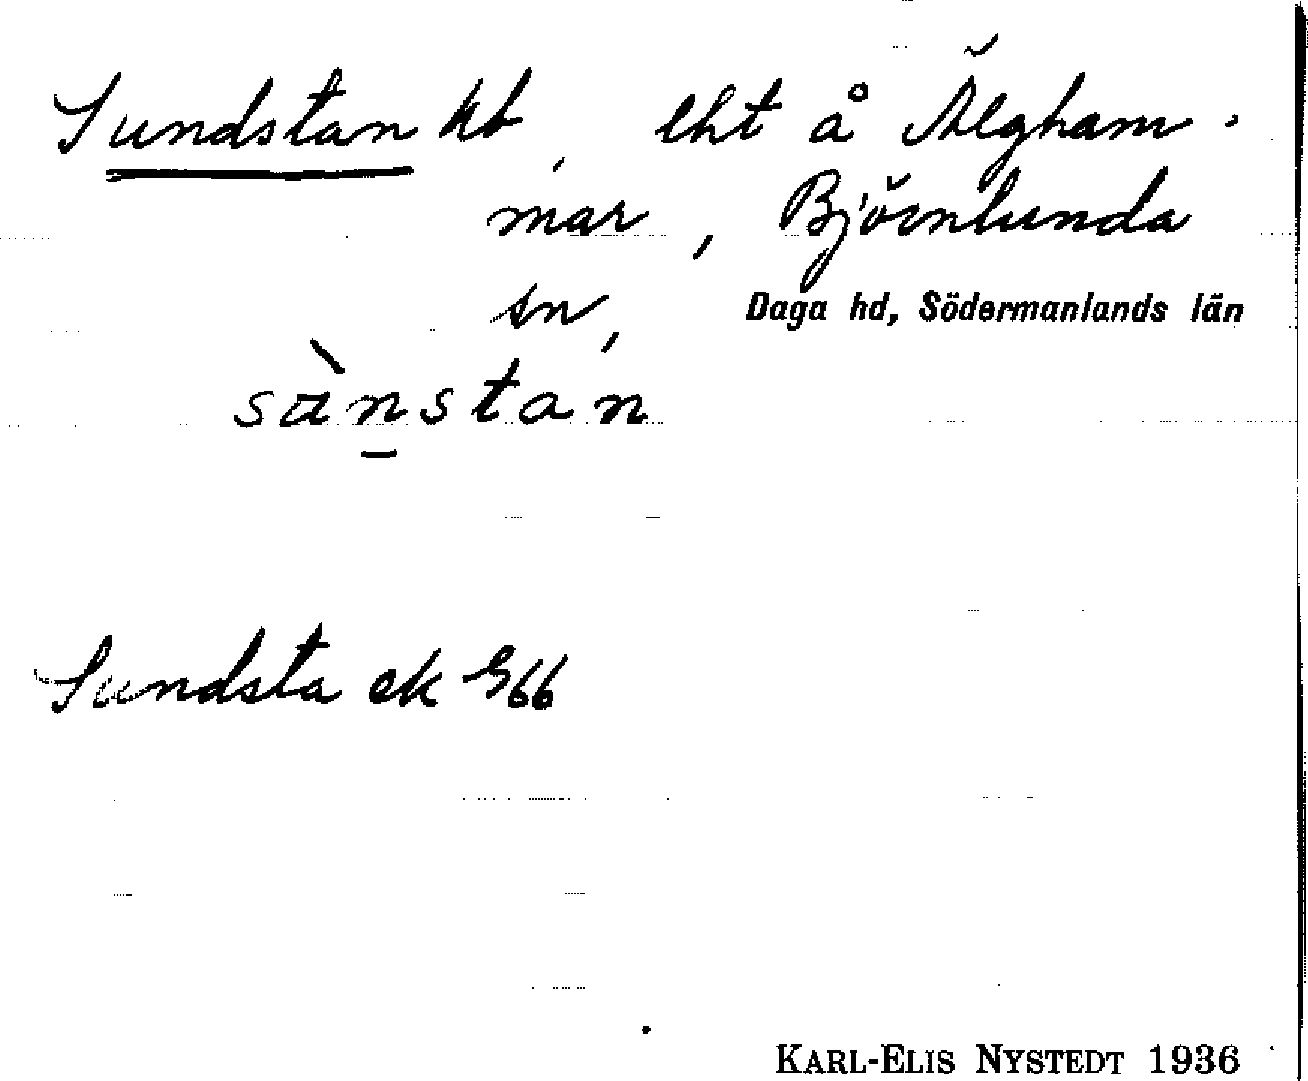 Sundstan hb, lht å Älgham-
mar, Björnlunda
sn, Daga hd, Södermanlands län
sànstan
Sundsta ek G66
KARL-ELIS NYSTEDT 1936